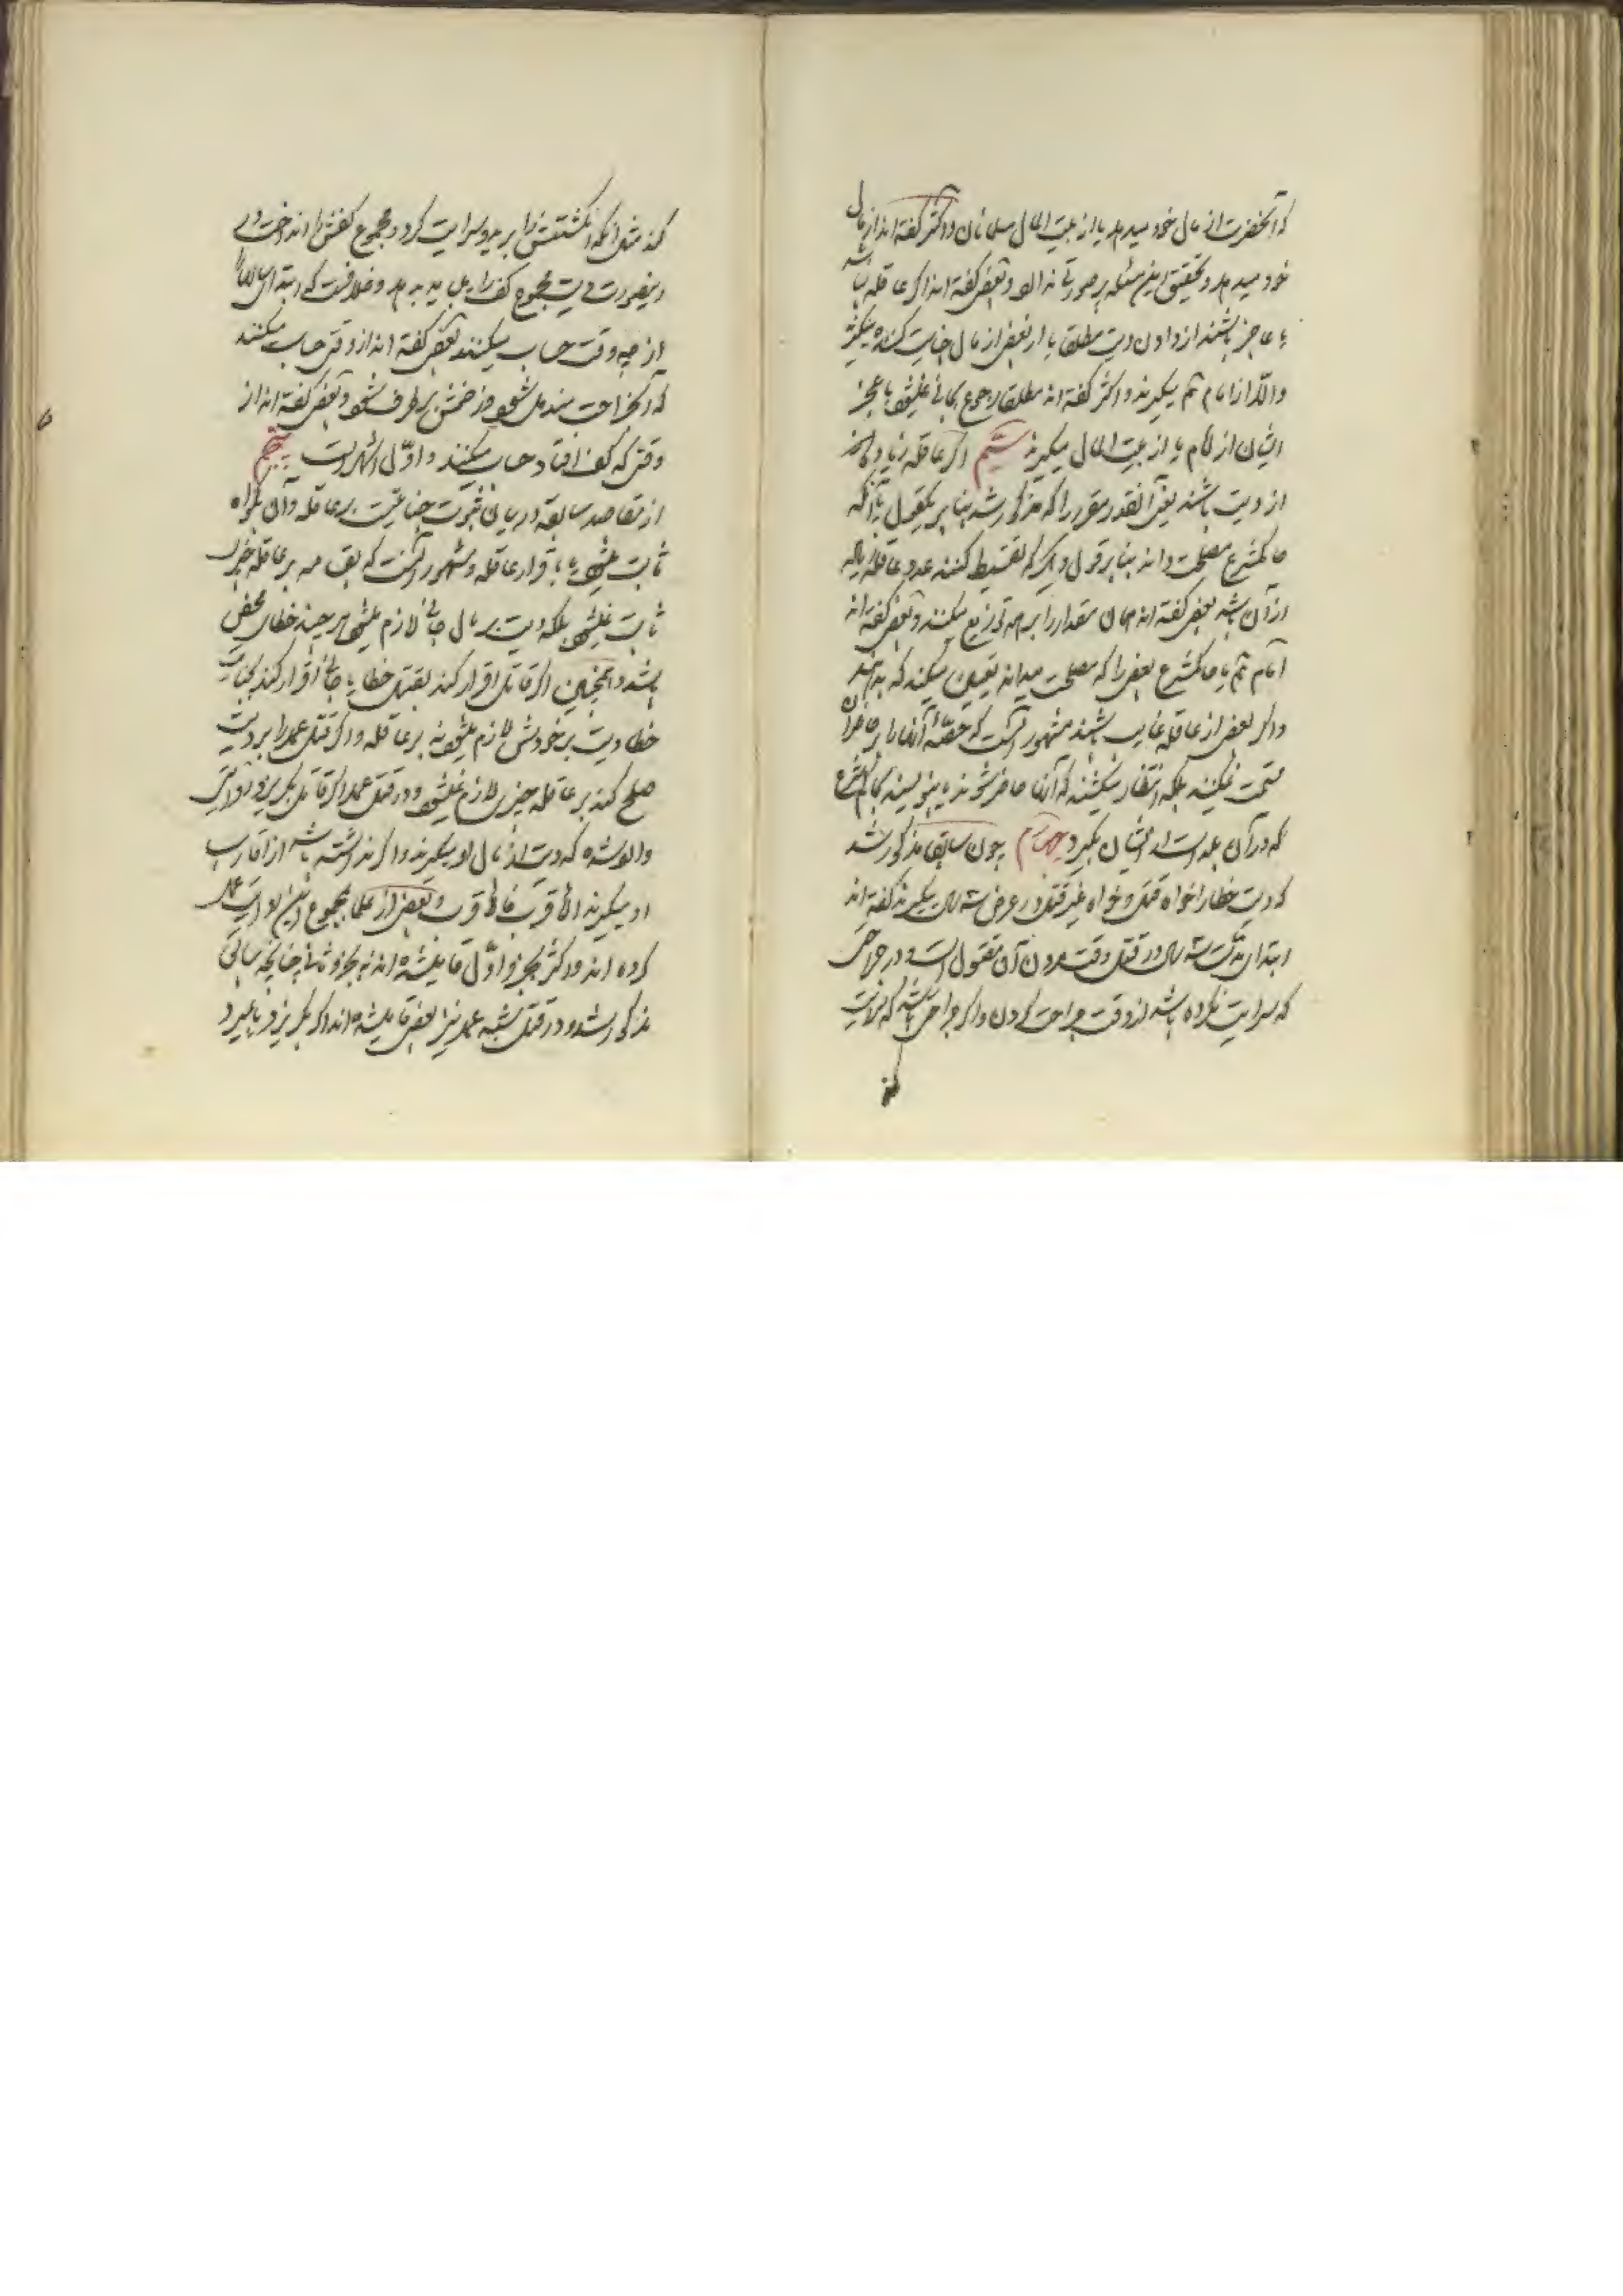 که آنحضرت از مال خود میدهد یا از بیت المال مسلمانان و اکثر گفته اند از مال
خود میدهد و تحقیق این مسئله ضرورتی ندارد و بعضی گفته اند اگر عاقله نباشد
یا عاجز باشند از دادن دیت مطلقا یا از بعضی از مال جنایت کننده میگیرند
والا از امام میگیرند و اکثر گفته اند مطلقا رجوع بجانی نمیشود با عجز
ایشان از امام یا از بیت المال میگیرند ششم اگر عاقله زیاده
از دیت باشند یعنی آنقدر مقرر را که مذکور شد بنا بر یکقول یا آنکه
حاکم شرع مصلحت داند بنا بر قول دیگر که تقسیط کنند عدد عاقله زیاده
از آن باشد بعضی گفته اند همان مقدار را بر همه توزیع میکنند و بعضی گفته اند
امام یا حاکم شرع بعضی را که مصلحت میداند تعیین میکند که بدهند
و اگر بعضی از عاقله غایب باشند مشهور آنست که حصّهٔ آنها را بر حاضران
قسمت نمیکنند بلکه انتظار میکشند که آنها حاضر شوند یا بنویسند بحاکم شرع
که در آن بلد است از ایشان بگیرد چون سابقا مذکور شد
که دیت خطا را خواه قتل و خواه غیر قتل در عرض سه سال میگیرند گفته اند
ابتدای سه سال در قتل وقت مردن آن مقتول است و در جراحتی
که سرایت نکرده باشد از وقت جراحت کردن و اگر جراحتی باشد که سرایت
کند
کند مثل آنکه انگشتش را برید و سرایت کرد و مجموع کفش را انداخت در
اینصورت دیت مجموع کف را باید بدهد و خلافست که ابتدای سال را
از چه وقت حساب میکنند بعضی گفته اند از وقتی حساب میکنند
که آنجراحت مندمل شود و زخمش برطرف شود و بعضی گفته اند از
وقتی که کف افتاد حساب میکنند و اوّل اشهر است پنجم
از مقاصد سابقه در بیان ثبوت جنایتست بر عاقله و آن بگواه
ثابت میشود یا باقرار عاقله و مشهور آنست که بقسامه بر عاقله چیزی
ثابت نمیشود بلکه دیت بر مال جانی لازم میشود هر چند خطای محض
باشد و همچنین اگر قاتل اقرار کند بقتل خطا یا جانی اقرار کند بجنایت
خطا دیت بر خودش لازم میشود نه بر عاقله و اگر قتل عمد را بر دیت
صلح کند بر عاقله چیزی لازم نمیشود و در قتل عمد اگر قاتل بگریزد
که دیت از مال او میگیرند و اگر نداشته باشد از اقارب
او میگیرند الاقرب فالاقرب و بعضی از علما مجموع این
کرده اند و اکثر بجزو اوّل قایل شده اند نه بجزو ثانی چنانچه سابق
مذکور شد و در قتل شبه عمد نیز بعضی قایل شده اند اگر بگریزد یا بمیرد